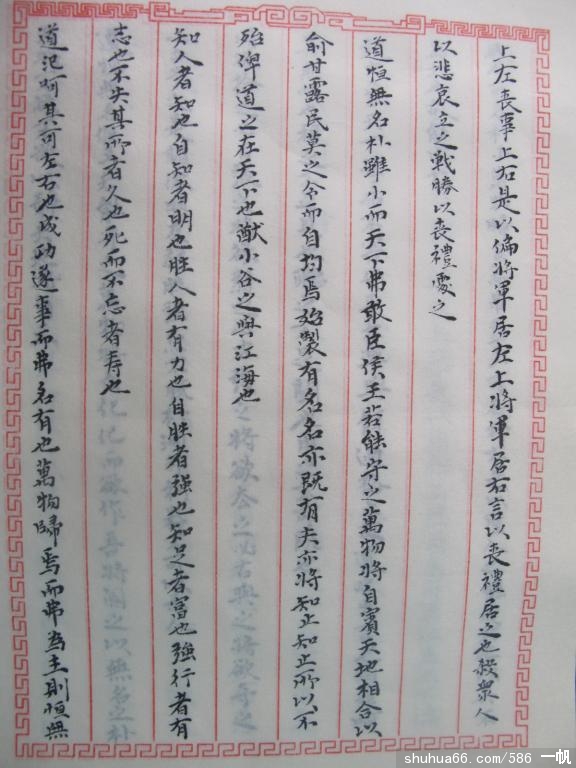 上左丧事上右是以偏将軍居左上将軍居右言以丧禮居之也殺衆人
以悲哀立之戦勝以丧禮處之
道恒無名朴雖小而天下弗敢臣侯王若能守之萬物将自賓天地相合以
俞甘露民莫之令而自均焉始製有名名亦既有夫亦将知止知止所以不
殆俾道之在天下也猷小谷之與江海也
知人者知也自知者明也胜人者有力也自胜者强也知足者富也强行者有
志也不失其所者久也死而不忘者寿也
道汜呵其可左右也成功遂事而弗名有也萬物歸焉而弗為主則恒無
shuhua66.com/586 一帆